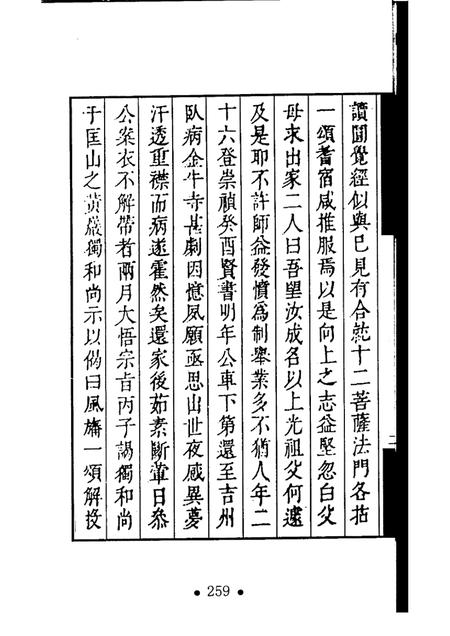 讀圓覺經似與已見有合乾十二菩薩法門各拈
一頌耆宿咸推服焉以是向上之志益堅忽白父
母求出家二人曰吾望汝成名以上光祖父何遽
及是耶不許師益發憤為制舉業多不猶人年二
十六登崇禎癸酉賢書明年公車下第還至吉州
臥病金牛寺甚劇因憶夙願亟思出世夜感異夢
汗透重襟而病遂霍然矣還家後茹素斷葷日叅
公案衣不解帶者兩月大悟宗旨丙子謁獨和尚
于匡山之黃巖獨和尚示以偈曰風旛一頌解投
二
• 259 •